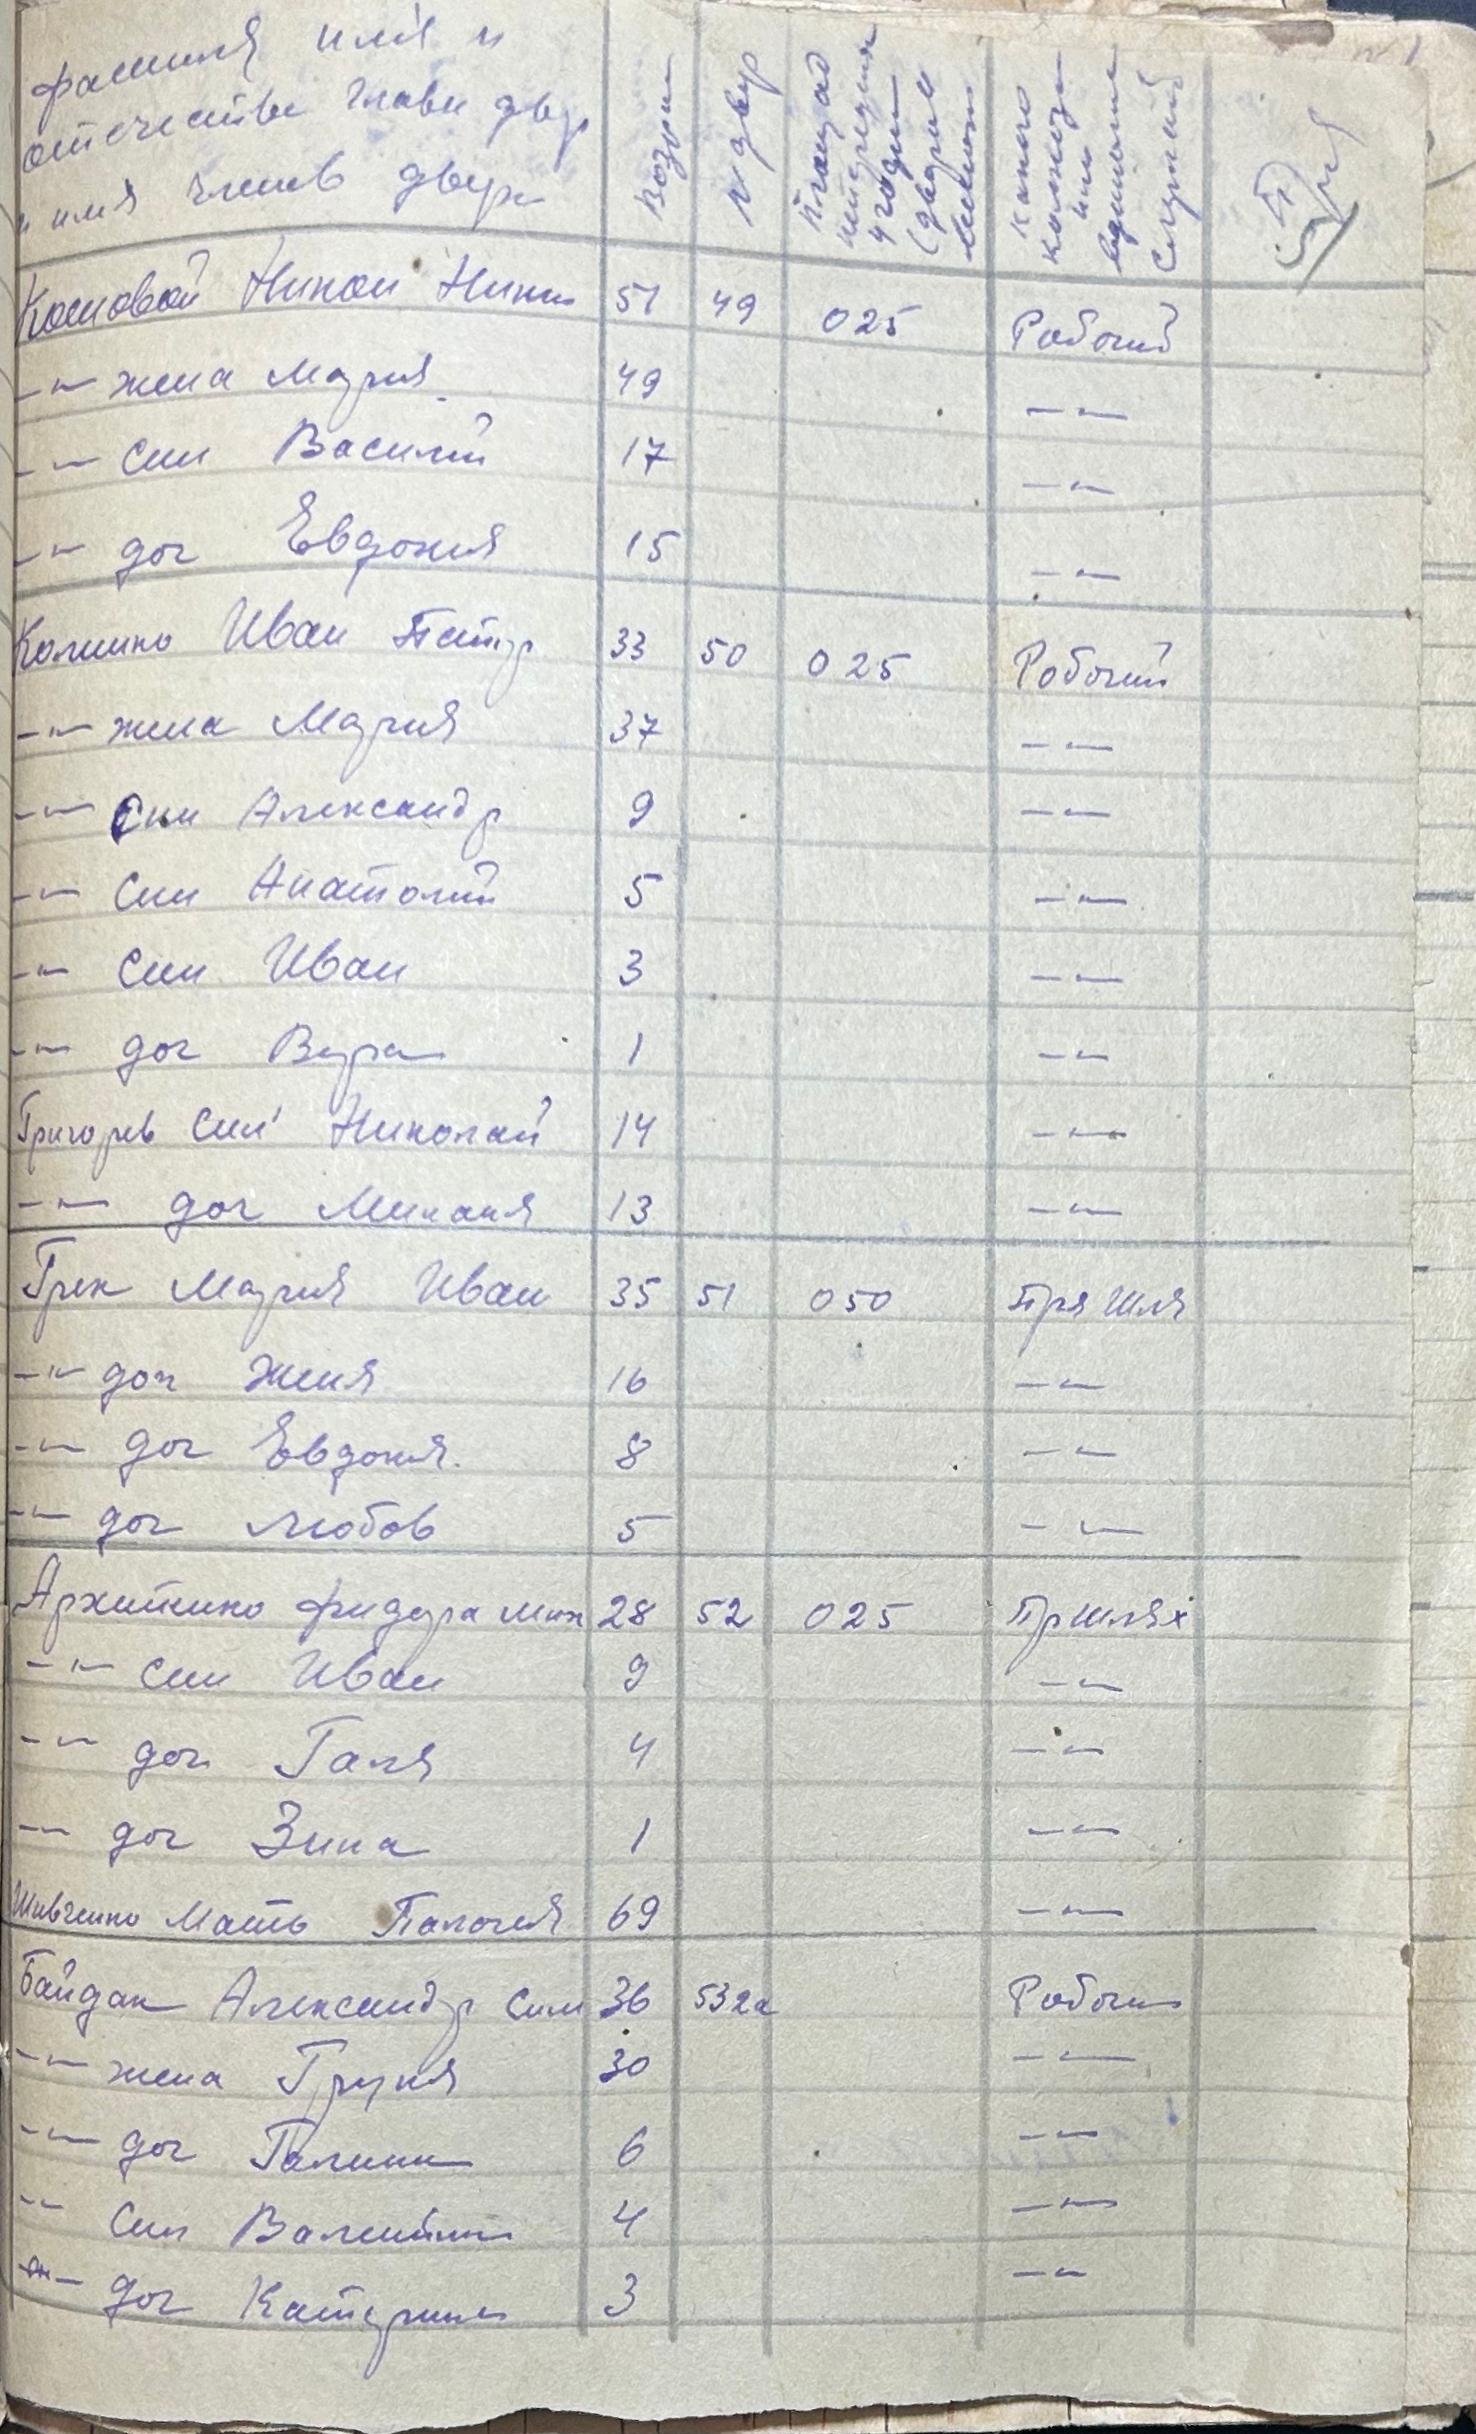 фамиля имя и
отечестви глави двор
и имя членв двора
Возрас
№ двор
Площад
Какого
колхоза
или
Костовой Никон Ники 51 49 025 Робочий
-"- жена Мария 49 -"-
-"- син Василий 17 -"-
-"- доч Евдокия 15 -"-
Иван Петр 33 50 025 Робочий
-"- жена Мария 37 -"-
-"- син Александр 9 -"-
-"- син Анатолий 5 -"-
-"- син Иван 3 -"-
-"- доч Вера 1 -"-
Григорев син Николай 14 -"-
-"- доч 13 -"-
Грек Мария Иван 35 51 050 Пря Шля
-"- доч Женя 16 -"-
-"- доч Евдокия 8 -"-
-"- доч Любов 5 -"-
Фидора Мих 28 52 025 Пр Шлях
-"- син Иван 9 -"-
-"- доч Галя 4 -"-
-"- доч Зина 1 -"-
Шивченко Мать Палогия 69 -"-
Байдак Александр Сим 36 532а Робочи
-"- жена Груня 30 -"-
-"- доч Галина 6 -"-
-"- син Валентин 4 -"-
-"- доч Катерина 3 -"-